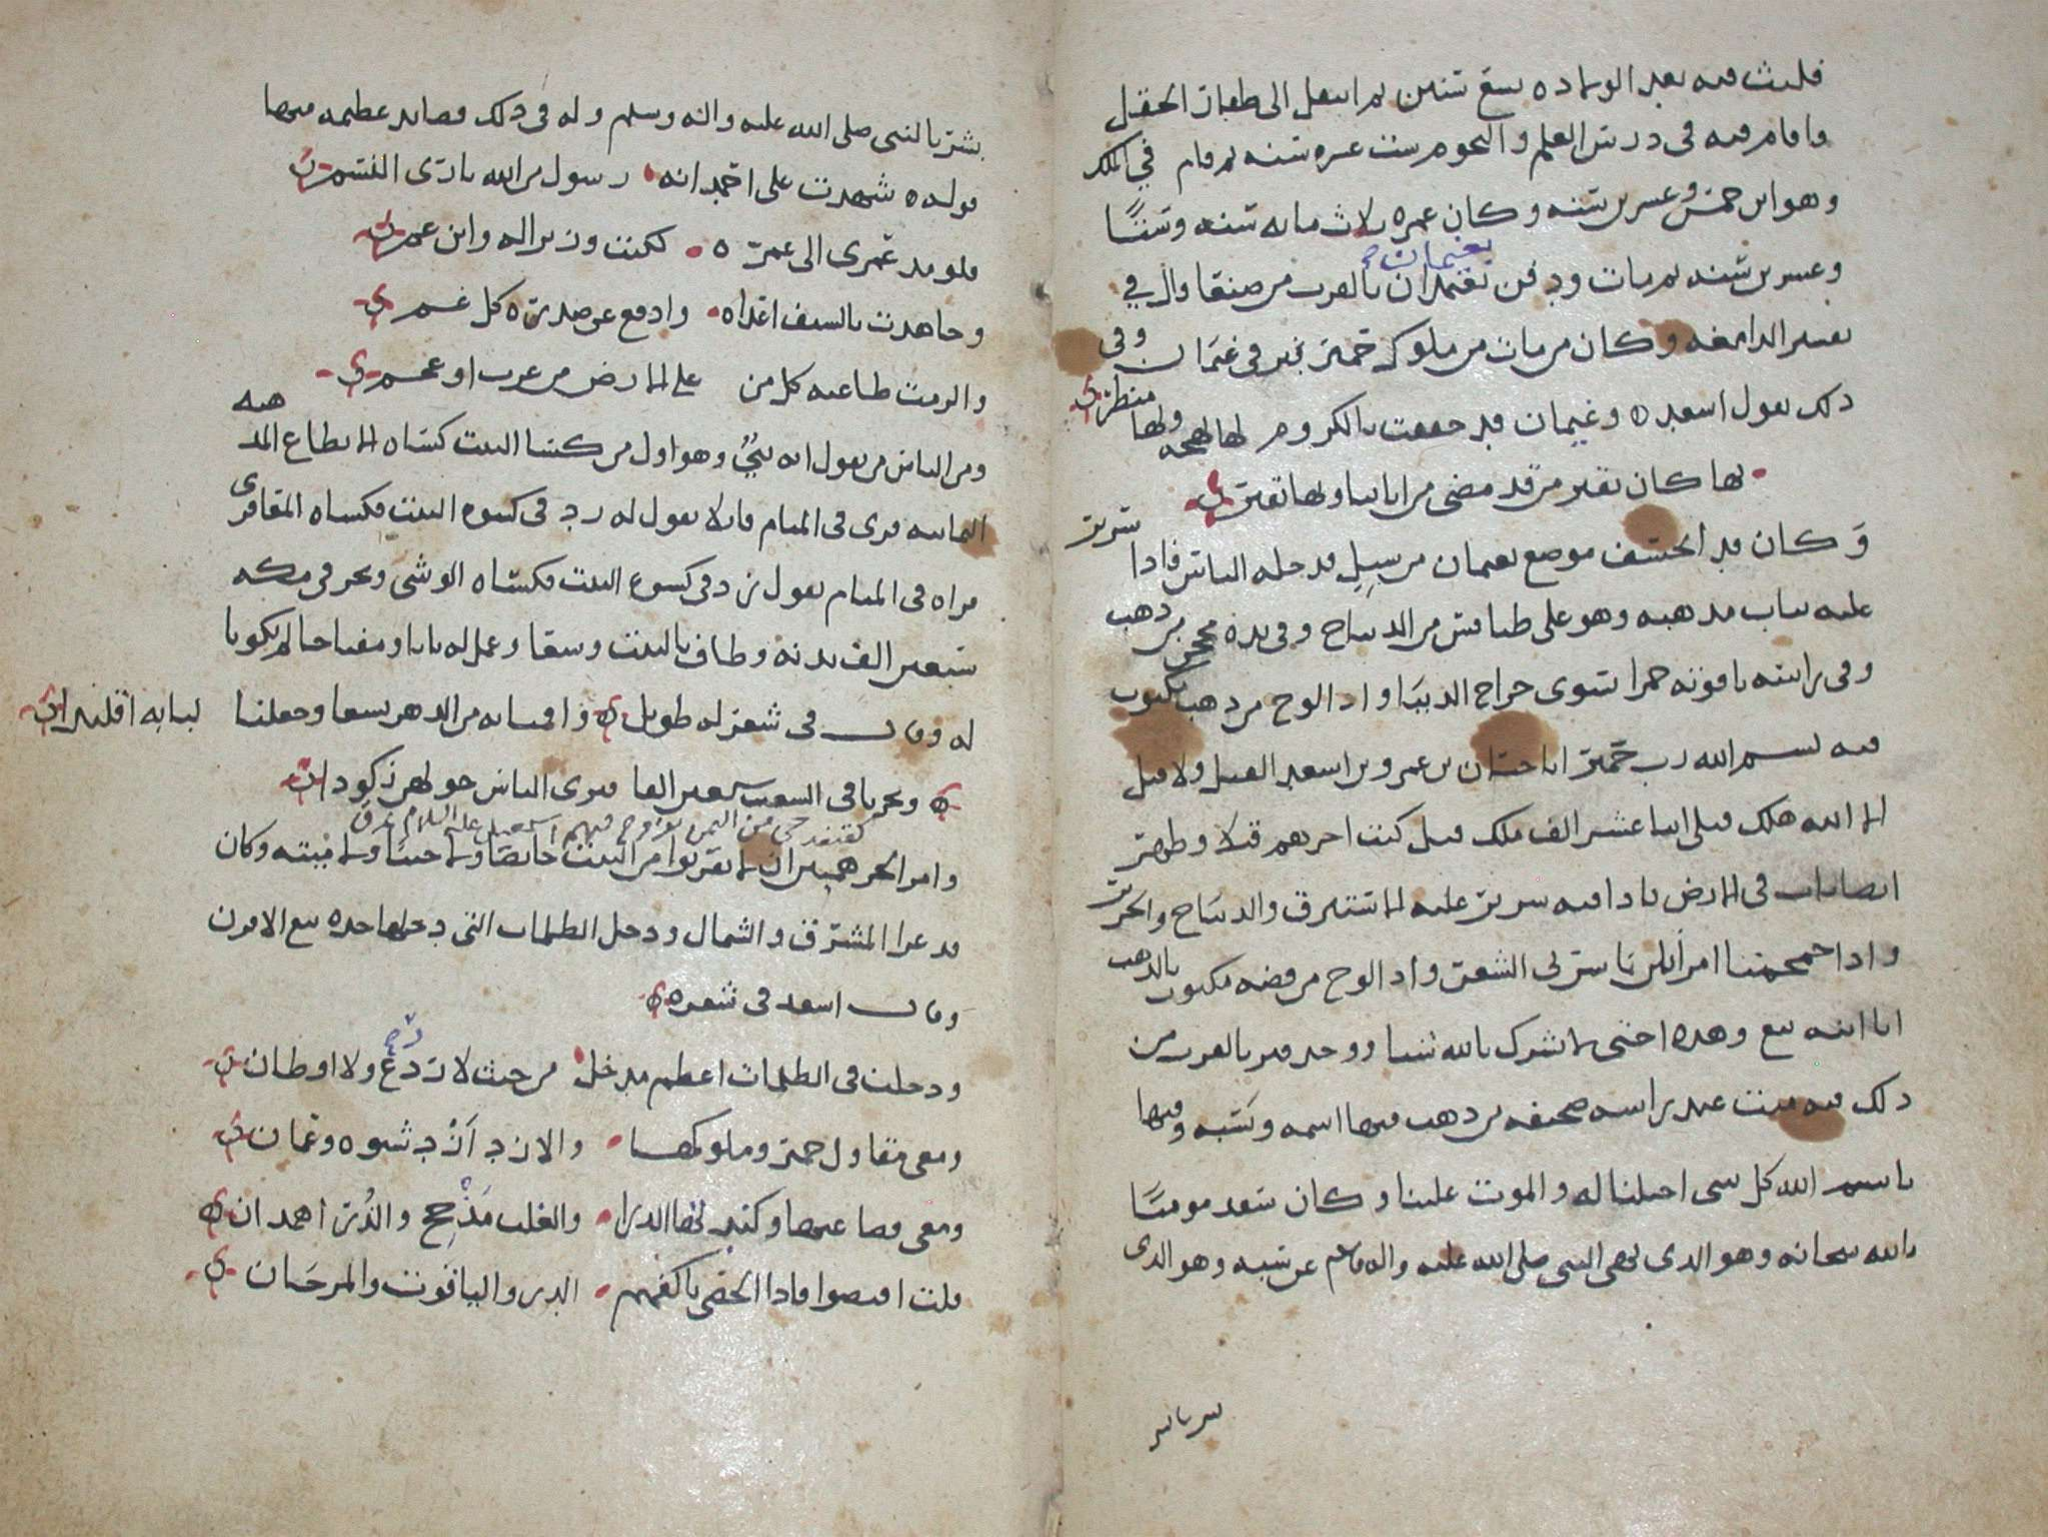 فلبث فيه بعد الولاده سبع سنين ثم انتقل الى ظفار الحقل
واقام فيه فى درس العلم والنجوم ست عشره سنه ثم قام في الملك
وهو ابن خمس وعشرين سنه وكان عمره ثلاث مايه سنه وستا
بغيمان
وعشرين سنه ثم مات ودفن بغيمان بالقرب من صنعا والذي
تفسير الدامغه وكان من مات من ملوك حمير قبر فى غيمان وفى
ذلك يقول اسعد وغيمان قد حففت بالكروم لها بهجه ولها منظر
بها كان يقبر من قد مضى من ابائنا وبها نقبر
وكان قد انخسف موضع بغيمان من سيل فدخله الناس فاذا سرير
عليه ثياب مذهبه وهو على طنافس من الديباج وفى يده محجن من ذهب
وفى راسه ياقوته حمرا تسوى خراج الدنيا واذا لوح من ذهب مكتوب
فيه بسم الله رب حمير انا حسان بن عمرو بن اسعد القيل ولا قيل
الا الله هلك قبلى اثنا عشر الف ملك قيل كنت اخرهم قيلا وظهر
ايضا باب فى الارض فاذا فيه سرير عليه الاستبرق والديباج والحرير
واذا جمجمتا امراتين ناشرتى الشعر واذا لوح من فضه مكتوب بالذهب
انا ابنه تبع وهذه اختى لا نشرك بالله شيا ووجد قبر بالقرب من
ذلك فيه ميت عند راسه صحيفه من ذهب فيها اسمه ونسبه وفيها
باسم الله كل شى احتلنا له والموت علينا وكان سعد مومنا
بالله سبحانه وهو الذى نهى النبى صلى الله عليه واله وسلم عن سبه وهو الذى
بشر بالنبى صلى الله عليه واله وسلم وله فى ذلك قصايد عظيمه فيها
قوله شهدت على احمد انه رسول من الله بارى النسم
فلو مد عمرى الى عمره لكنت وزيرا له وابن عم
وجاهدت بالسيف اعداه وادفع عن صدره كل غم
والزمت طاعته كل من على الارض من عرب او عجم
ومن الناس من يقول انه نبى وهو اول من كسا البيت كساه الانطاع المذهبه
اليمانيه فرى فى المنام قايلا يقول له زد فى كسوه البيت فكساه المعافرى
فراه فى المنام يقول زد فى كسوه البيت فكساه الوشى ونحر فى مكه
سبعين الف بدنه وطاف بالبيت وسقا وعمل له بابا ومفتاحا لم يكونا
له وقال فى شعر له طويل واقمنا به من الدهر سبعا وجعلنا لبابه اقليدا
ونحرنا فى الشعب سبعين الفا فترى الناس حولهن ركودا
حى من اليمن تزوج فيهم اسمعيل عليه السلام
وامر الجرهميين ان لا يقربوا من البيت حائضا ولا ميتا ولا ميته وكان
قد غزا المشرق والشمال ودخل الظلمات التى دخلها جده تبع الاقرن
وقال اسعد فى شعره
ودخلت فى الظلمات اعظم مدخل من حيث لا زرع ولا اوطان
ومعى مقاول حمير وملوكها والازد ازد شنوه وعمان
ومعى قضاعتها وكنده والغلب مذحج والذرى همدان
قلت اقبضوا فاذا الحصى باكفهم الدر والياقوت والمرجان